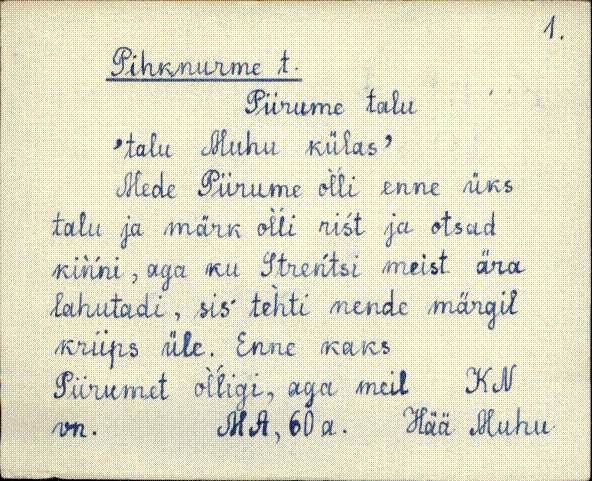 1.
Pihknurme t.
Piirume talu
'talu Muhu külas'
Mede Piirume ol̀l̀i enne üks
talu ja märk ol̀l̀i rist́ ja otsad
kiǹńi, aga ku Streńtsi meist ära
lahutadi, sis tèhti nende märgil
kriips üle. Enne kaks
Piirumet ol̀l̀igi, aga meil KN
vn. MA, 60 a. Hää Muhu